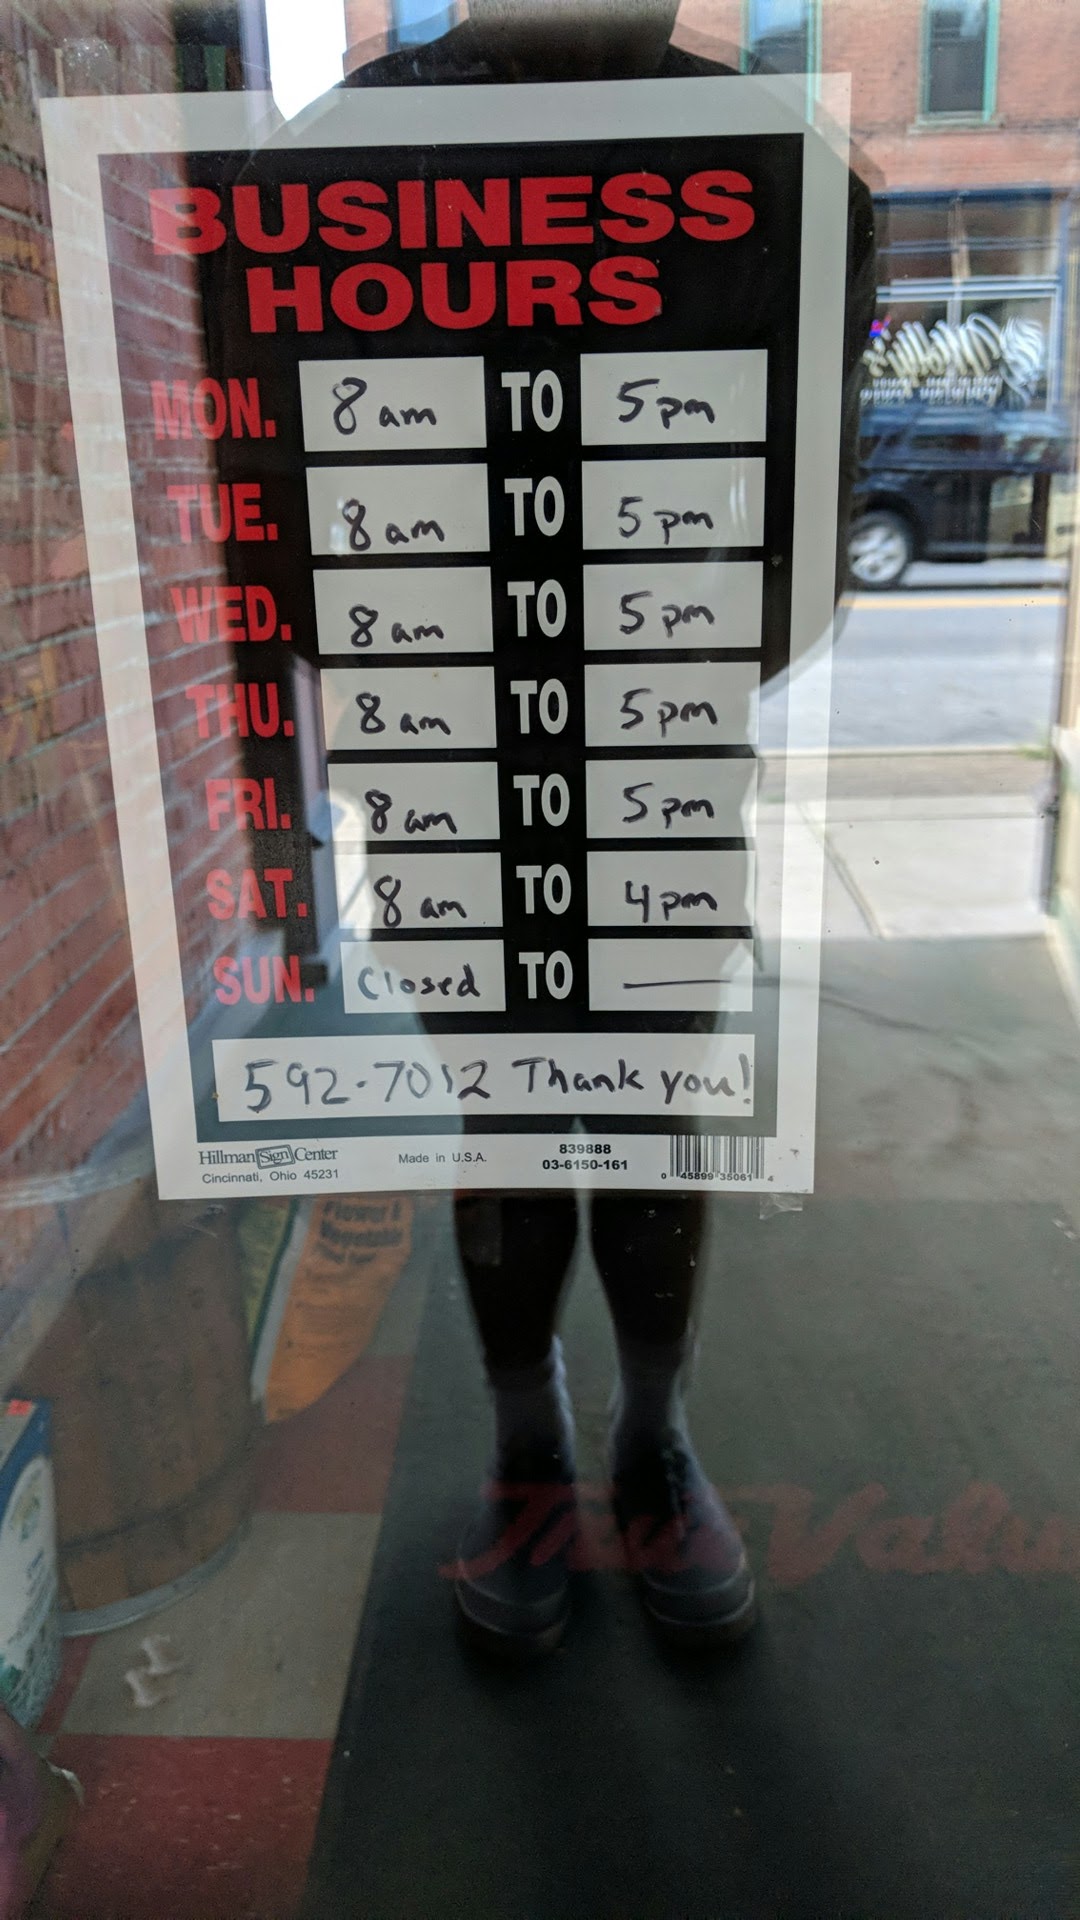 BUSINESS
HOURS
MON. 8 am TO 5 pm
TUE. 8 am TO 5 pm
WED. 8 am TO 5 pm
THU. 8 am TO 5 pm
FRI. 8 am TO 5 pm
SAT. 8 am TO 4 pm
SUN. Closed TO —
592-7012 Thank you!
Hillman Sign Center
Cincinnati, Ohio 45231
Made in U.S.A.
839888
03-6150-161
0 45899 35061 4
Molly's
Flower &
Vegetable
True Value